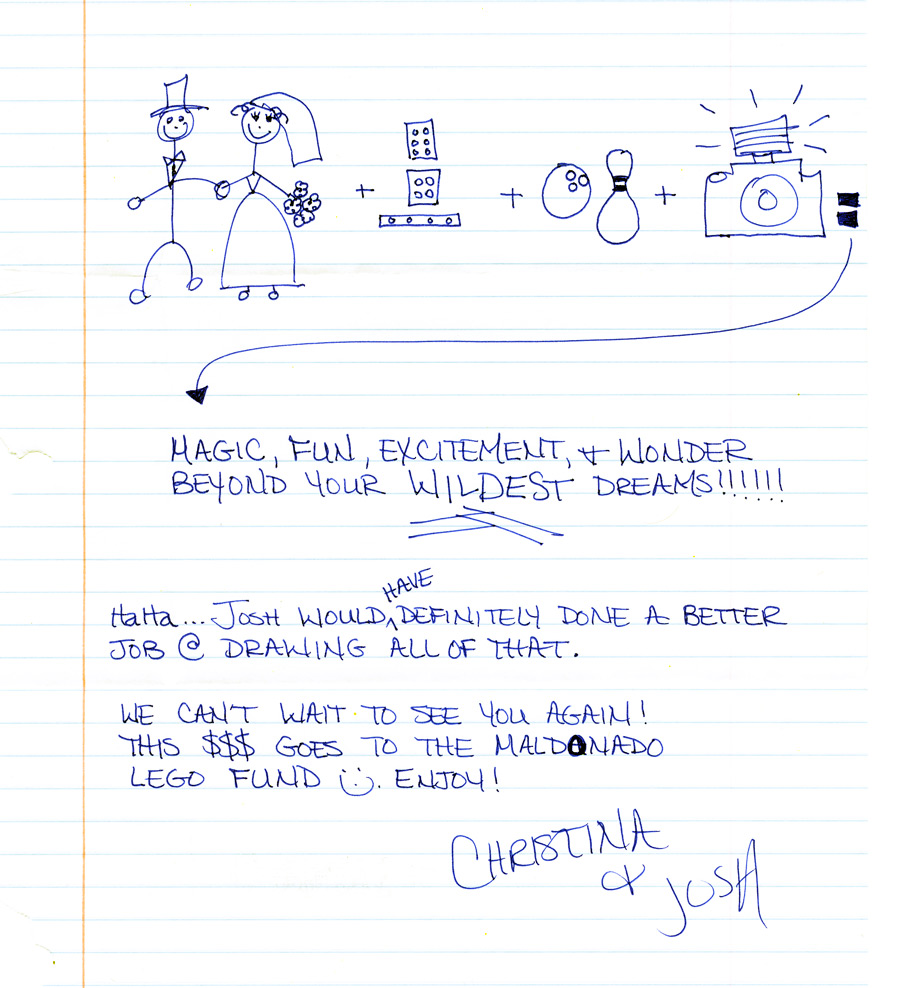 + + + =
MAGIC, FUN, EXCITEMENT, & WONDER
BEYOND YOUR WILDEST DREAMS!!!!!!
HaHa... JOSH WOULD HAVE DEFINITELY DONE A BETTER
JOB @ DRAWING ALL OF THAT.
WE CAN'T WAIT TO SEE YOU AGAIN!
THIS $$$ GOES TO THE MALDONADO
LEGO FUND :). ENJOY!
CHRISTINA
& JOSH